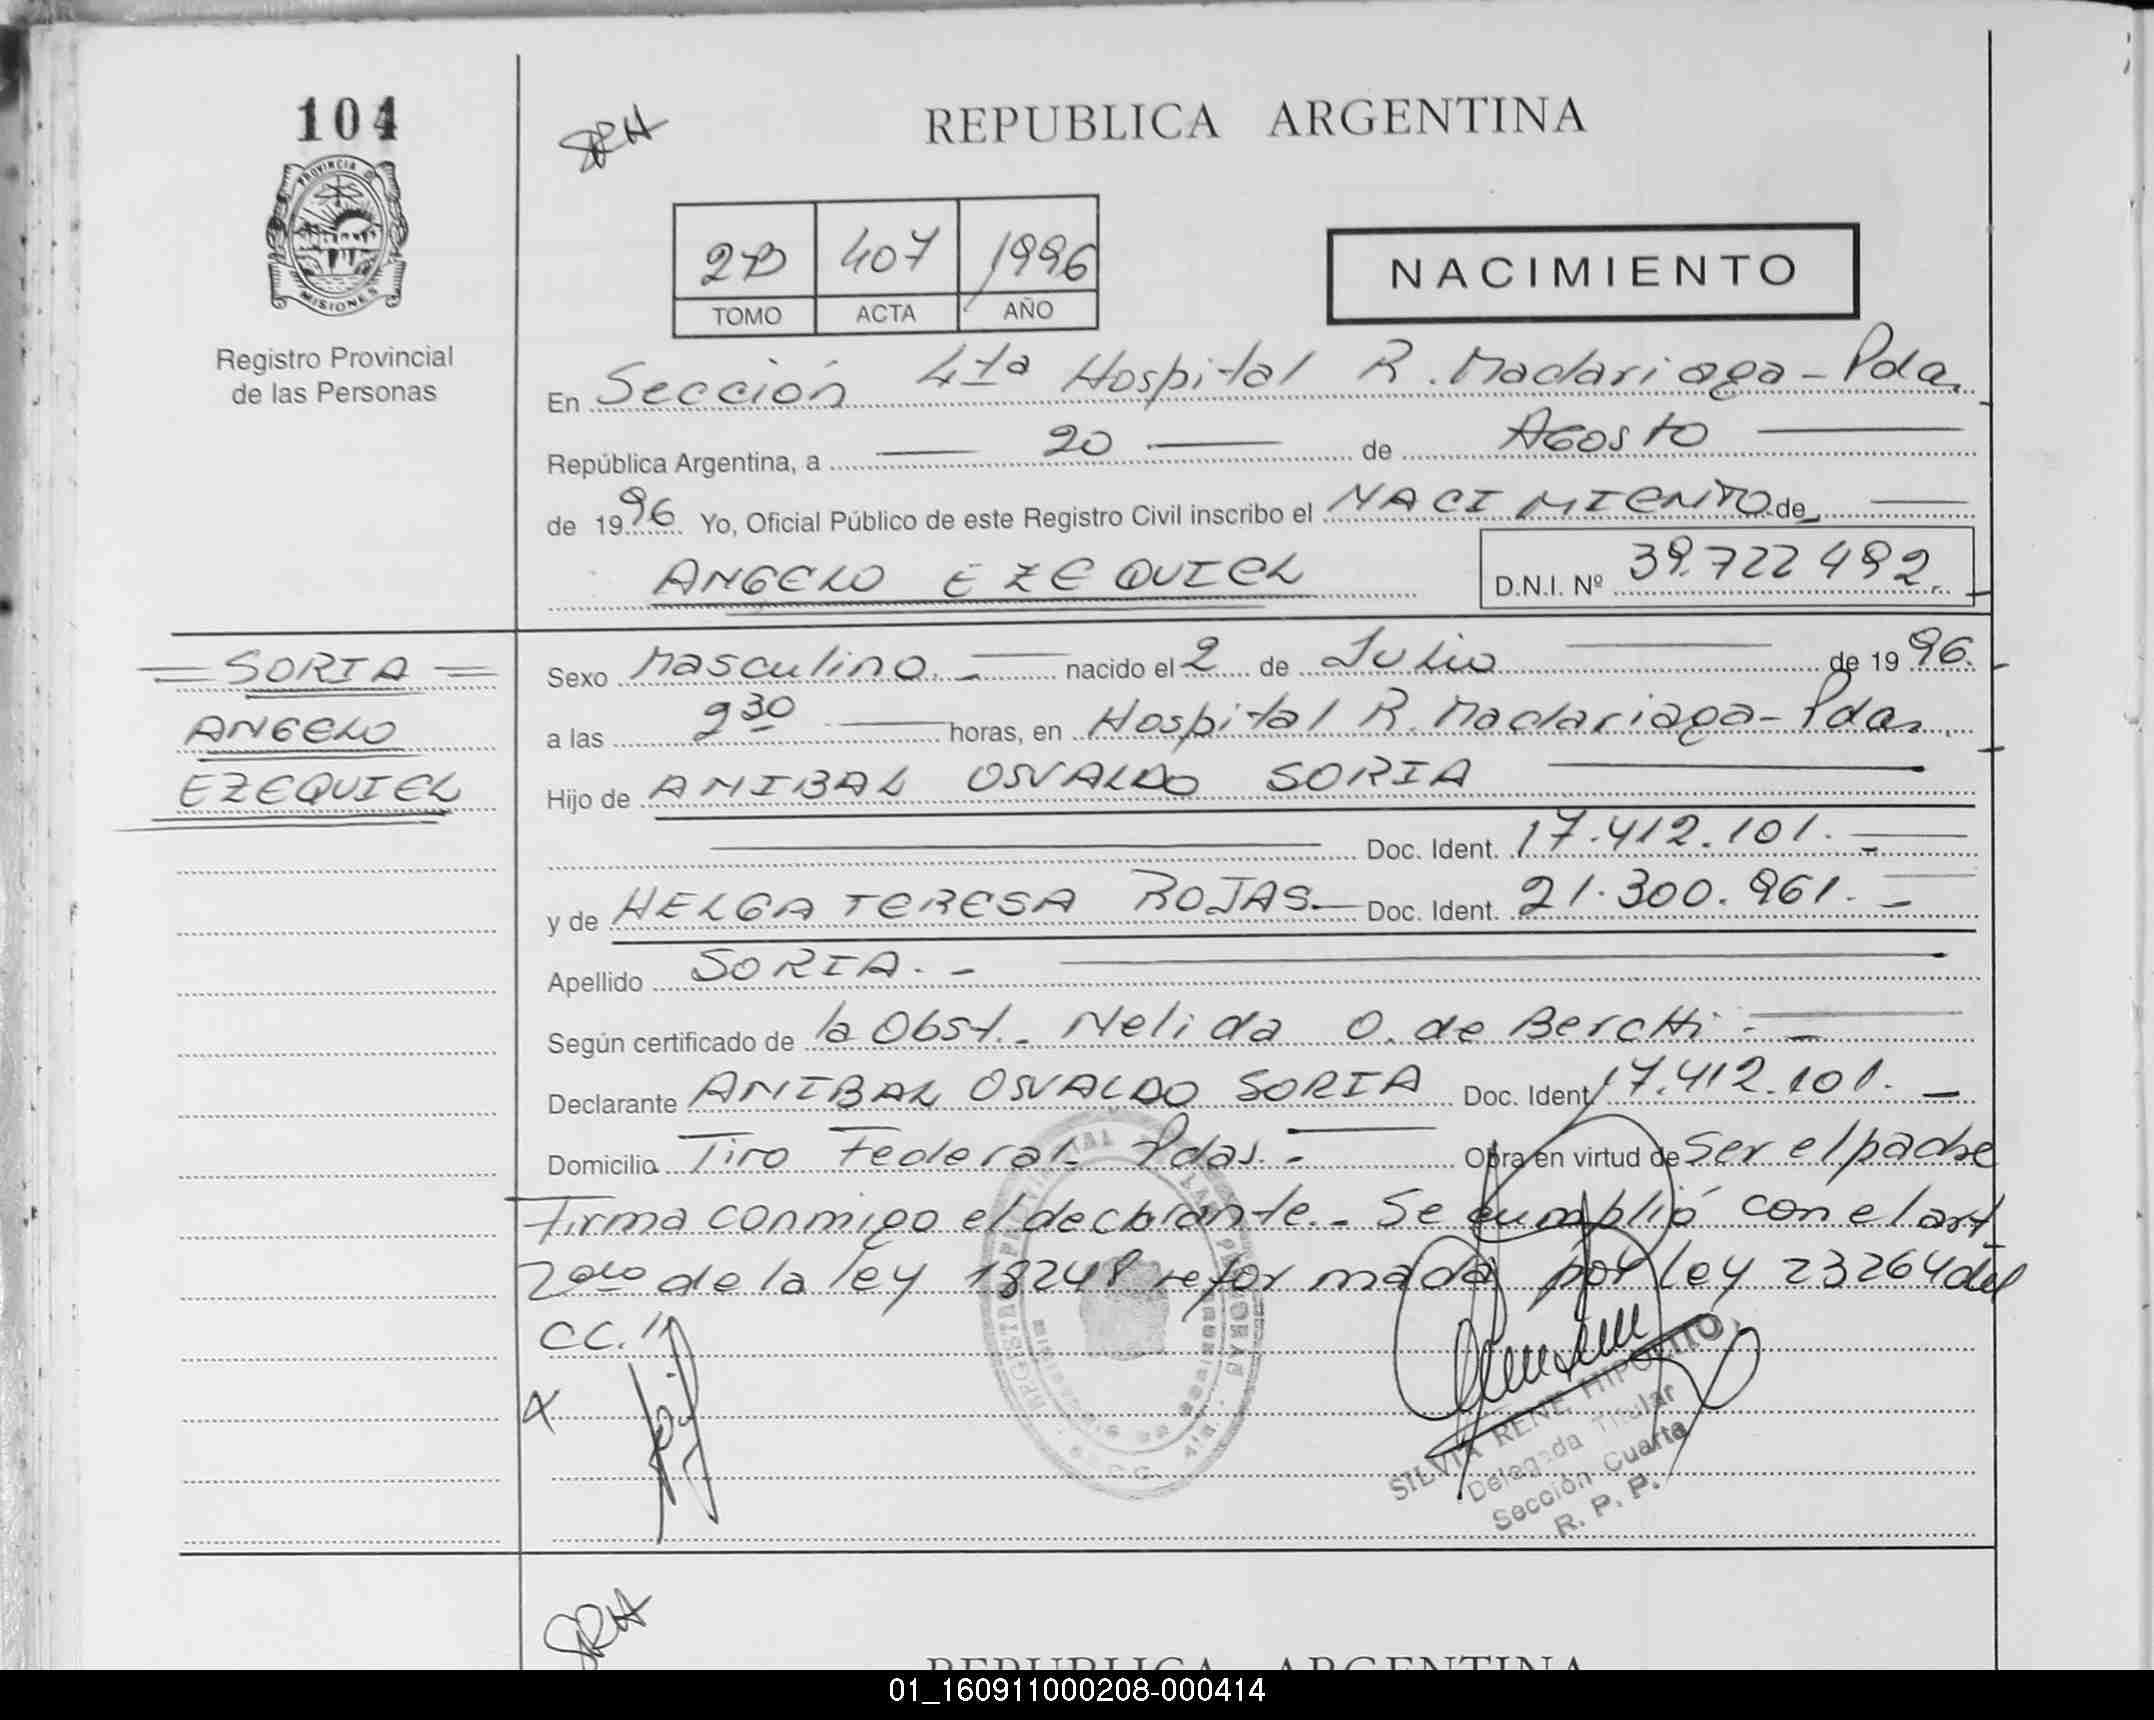 104
SRH
REPUBLICA ARGENTINA
PROVINCIA D MISIONES
Registro Provincial
de las Personas
2B 407 1996
TOMO ACTA AÑO
NACIMIENTO
En Sección 4ta Hospital R. Madariaga - Pdas
República Argentina, a 20 de Agosto
de 1996 Yo, Oficial Público de este Registro Civil inscribo el NACIMIENTO de
ANGELO EZEQUIEL D.N.I. Nº 39.722492.
= SORIA =
ANGELO
EZEQUIEL
Sexo Masculino. - nacido el 2 de Julio de 1996.
a las 2 30 horas, en Hospital R. Madariaga - Pdas.
Hijo de ANIBAL OSVALDO SORIA
Doc. Ident. 17.412.101. -
y de HELGA TERESA ROJAS Doc. Ident. 21.300.961. -
Apellido SORIA. -
Según certificado de la Obst. - Nelida O. de Beretti. -
Declarante ANIBAL OSVALDO SORIA Doc. Ident. 17.412.101. -
Domicilio Tiro Federal - Pdas. - Obra en virtud de ser el padre
Firma conmigo el declarante. - Se cumplió con el art
2do de la ley 18248 reformada por ley 23264 del
CC. //
X
SILVIA RENE HIPOLITO
Delegada Titular
Sección Cuarta
R. P. P.
SRH
REPUBLICA ARGENTINA
01_160911000208-000414